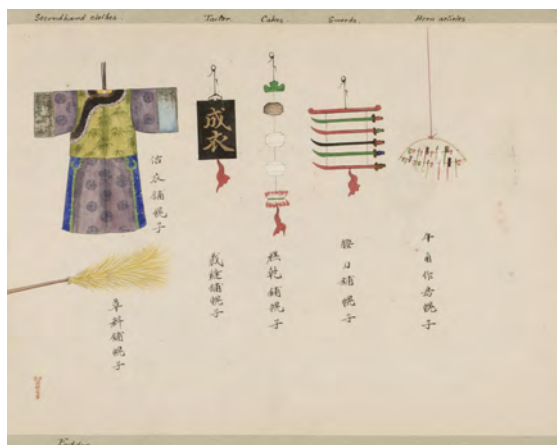 Secondhand clothes.
Tailor.
Cakes.
Swords.
Horn articles
成衣
估衣鋪幌子
裁縫鋪幌子
糕乾鋪幌子
腰刀鋪幌子
牛角作幌子
草料鋪幌子